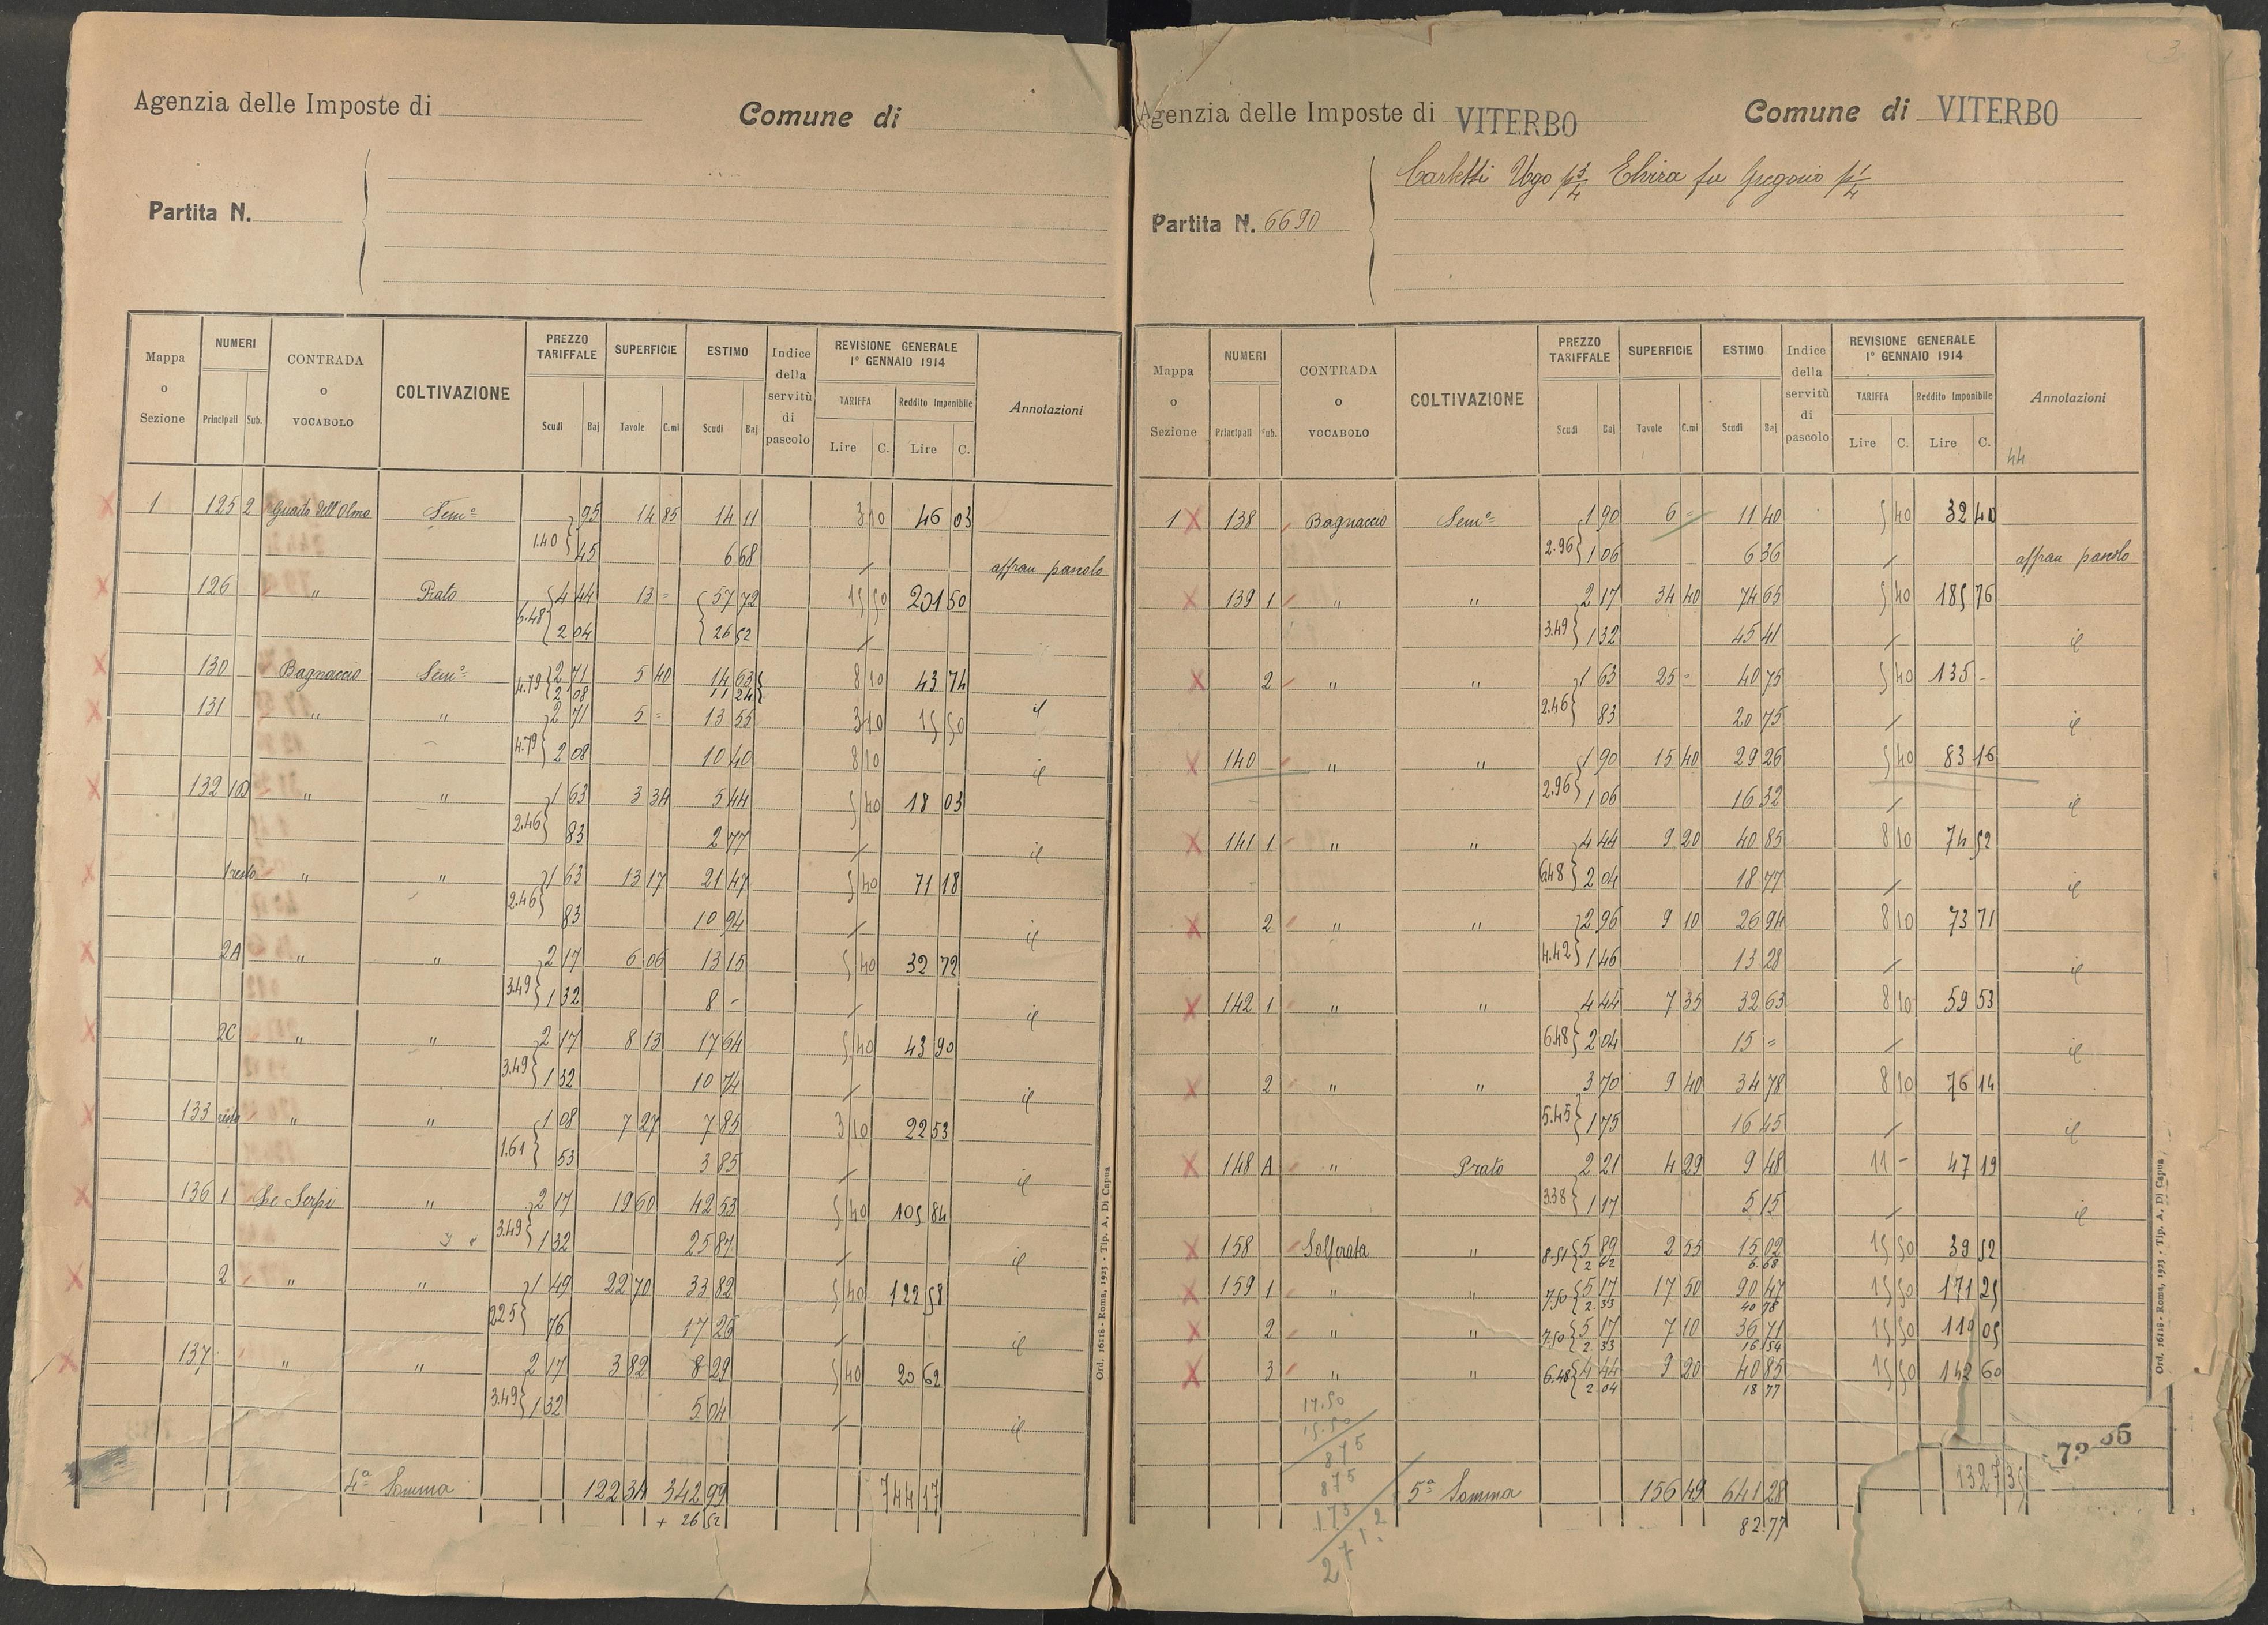 Agenzia delle Imposte di
Comune di
Partita N.
Mappa o Sezione
NUMERI
Principali Sub.
CONTRADA o VOCABOLO
COLTIVAZIONE
PREZZO TARIFFALE
Scudi Baj
SUPERFICIE
Tavole C.mi
ESTIMO
Scudi Baj
Indice della servitù di pascolo
REVISIONE GENERALE 1° GENNAIO 1914
TARIFFA
Lire C.
Reddito Imponibile
Lire C.
Annotazioni
1 125 2 Guado dell'Olmo Sem° 95 14 85 14 11 3 10 46 03
1.40 45 6 68 affran pascolo
126 " Prato 4 44 13 = 57 72 15 50 201 50
6.48 2 04 26 52
130 Bagnaccio Sem° 2 71 5 40 14 63 8 10 43 74
4.79 2 08 11 24
131 " " 2 71 5 = 13 55 3 10 15 50 il
4.79 2 08 10 40 8 10 il
132 1D " " 1 63 3 34 5 44 5 40 18 03
2.46 83 2 77 il
1 resto " " 1 63 13 17 21 47 5 40 71 18
2.46 83 10 94 il
2A " " 2 17 6 06 13 15 5 40 32 72
3.49 1 32 8 - il
2C " " 2 17 8 13 17 64 5 40 43 90
3.49 1 32 10 74 il
133 resto " " 1 08 7 27 7 85 3 10 22 53
1.61 53 3 85 il
136 1 Le Serpi " 2 17 19 60 42 53 5 40 105 84
3.49 1 32 25 87 il
2 " " 1 49 22 70 33 82 5 40 122 58
2.25 76 17 25 il
137 " " 2 17 3 82 8 29 5 40 20 62
3.49 1 32 5 04 il
4ª Somma 122 34 342 99 744 17
+ 26 52
Ord. 16118 - Roma, 1923 - Tip. A. Di Capua
Agenzia delle Imposte di VITERBO
Comune di VITERBO
Carletti Ugo p 3/4 Elvira fu Gregorio p 1/4
Partita N. 6690
Mappa o Sezione
NUMERI
Principali Sub.
CONTRADA o VOCABOLO
COLTIVAZIONE
PREZZO TARIFFALE
Scudi Baj
SUPERFICIE
Tavole C.mi
ESTIMO
Scudi Baj
Indice della servitù di pascolo
REVISIONE GENERALE 1° GENNAIO 1914
TARIFFA
Lire C.
Reddito Imponibile
Lire C.
Annotazioni
44
1 138 Bagnaccio Sem° 1 90 6 = 11 40 5 40 32 40
2.96 1 06 6 36 affran pascolo
139 1 " " 2 17 34 40 74 65 5 40 185 76
3.49 1 32 45 41 il
2 " " 1 63 25 = 40 75 5 40 135 -
2.46 83 20 75 il
140 " " 1 90 15 40 29 26 5 40 83 16
2.96 1 06 16 32 il
141 1 " " 4 44 9 20 40 85 8 10 74 52
6.48 2 04 18 77 il
2 " " 2 96 9 10 26 94 8 10 73 71
4.42 1 46 13 28 il
142 1 " " 4 44 7 35 32 63 8 10 59 53
6.48 2 04 15 = il
2 " " 3 70 9 40 34 78 8 10 76 14
5.45 1 75 16 45 il
148 A " Prato 2 21 4 29 9 48 11 - 47 19
3.38 1 17 5 15 il
158 Solforata " 5 89 2 55 15 02 15 50 39 52
8.51 2 62 6.68
159 1 " " 5 17 17 50 90 47 15 50 271 25
7.50 2.33 40 78
2 " " 5 17 7 10 36 71 15 50 110 05
7.50 2 33 16 54
3 " " 4 44 9 20 40 85 15 50 142 60
6.48 2 04 18 77
17.50
15.50
875
875
175
271.2
5ª Somma 156 49 641 28 1327 35
82.77
Ord. 16118 - Roma, 1923 - Tip. A. Di Capua